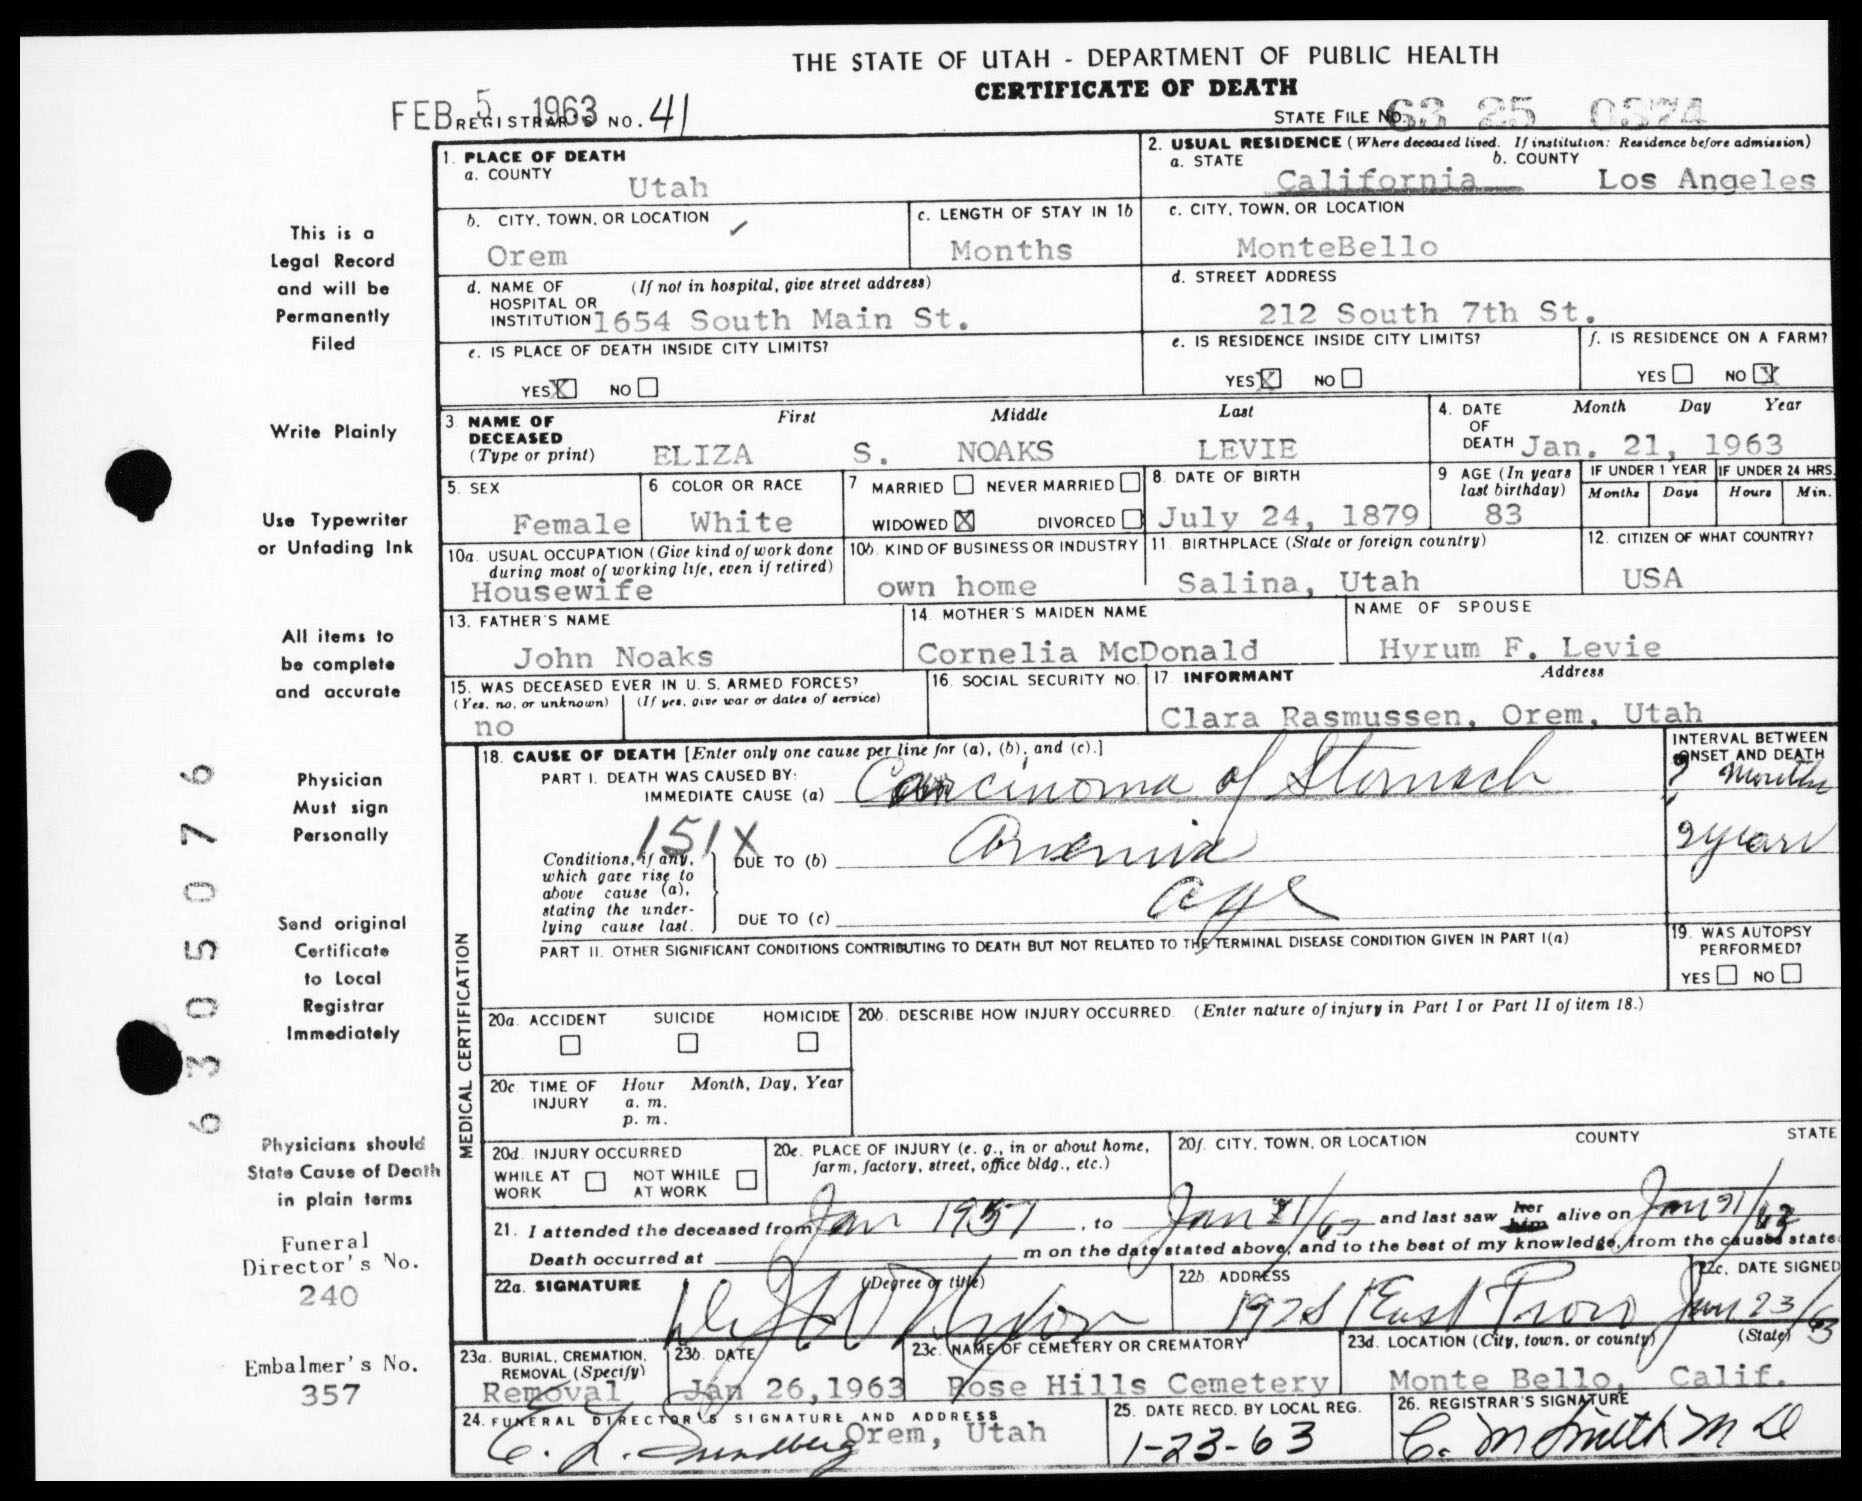 THE STATE OF UTAH - DEPARTMENT OF PUBLIC HEALTH
CERTIFICATE OF DEATH
FEB 5 1963
REGISTRAR'S NO. 41
STATE FILE NO. 63 25 0374
1. PLACE OF DEATH
a. COUNTY
Utah
2. USUAL RESIDENCE (Where deceased lived. If institution: Residence before admission)
a. STATE b. COUNTY
California Los Angeles
b. CITY, TOWN, OR LOCATION
Orem
c. LENGTH OF STAY IN 1b
Months
c. CITY, TOWN, OR LOCATION
MonteBello
d. NAME OF (If not in hospital, give street address)
HOSPITAL OR
INSTITUTION 1654 South Main St.
d. STREET ADDRESS
212 South 7th St.
e. IS PLACE OF DEATH INSIDE CITY LIMITS?
YES X NO
e. IS RESIDENCE INSIDE CITY LIMITS?
YES X NO
f. IS RESIDENCE ON A FARM?
YES NO X
3. NAME OF First Middle Last
DECEASED
(Type or print) ELIZA S. NOAKS LEVIE
4. DATE Month Day Year
OF
DEATH Jan. 21, 1963
5. SEX
Female
6 COLOR OR RACE
White
7 MARRIED NEVER MARRIED
WIDOWED X DIVORCED
8. DATE OF BIRTH
July 24, 1879
9 AGE (In years
last birthday)
83
IF UNDER 1 YEAR IF UNDER 24 HRS.
Months Days Hours Min.
10a. USUAL OCCUPATION (Give kind of work done
during most of working life, even if retired)
Housewife
10b. KIND OF BUSINESS OR INDUSTRY
own home
11. BIRTHPLACE (State or foreign country)
Salina, Utah
12. CITIZEN OF WHAT COUNTRY?
USA
13. FATHER'S NAME
John Noaks
14. MOTHER'S MAIDEN NAME
Cornelia McDonald
NAME OF SPOUSE
Hyrum F. Levie
15. WAS DECEASED EVER IN U. S. ARMED FORCES?
(Yes, no, or unknown) (If yes, give war or dates of service)
no
16. SOCIAL SECURITY NO.
17. INFORMANT Address
Clara Rasmussen, Orem, Utah
MEDICAL CERTIFICATION
18. CAUSE OF DEATH [Enter only one cause per line for (a), (b), and (c).]
PART I. DEATH WAS CAUSED BY:
IMMEDIATE CAUSE (a) Carcinoma of Stomach
INTERVAL BETWEEN
ONSET AND DEATH
Months
151X
Conditions, if any,
which gave rise to
above cause (a),
stating the under-
lying cause last.
DUE TO (b) Anemia
years
DUE TO (c) age
PART II. OTHER SIGNIFICANT CONDITIONS CONTRIBUTING TO DEATH BUT NOT RELATED TO THE TERMINAL DISEASE CONDITION GIVEN IN PART I(a)
19. WAS AUTOPSY
PERFORMED?
YES NO
20a. ACCIDENT SUICIDE HOMICIDE
20b. DESCRIBE HOW INJURY OCCURRED. (Enter nature of injury in Part I or Part II of item 18.)
20c. TIME OF Hour Month, Day, Year
INJURY a. m.
p. m.
20d. INJURY OCCURRED
WHILE AT NOT WHILE
WORK AT WORK
20e. PLACE OF INJURY (e. g., in or about home,
farm, factory, street, office bldg., etc.)
20f. CITY, TOWN, OR LOCATION COUNTY STATE
21. I attended the deceased from Jan 1957, to Jan 21/63 and last saw her him alive on Jan 21/63
Death occurred at m on the date stated above, and to the best of my knowledge, from the causes state
22a. SIGNATURE (Degree or title)
22b. ADDRESS
East Provo
22c. DATE SIGNED
Jan 23/63
23a. BURIAL, CREMATION,
REMOVAL (Specify)
Removal
23b. DATE
Jan 26, 1963
23c. NAME OF CEMETERY OR CREMATORY
Rose Hills Cemetery
23d. LOCATION (City, town, or county) (State)
Monte Bello, Calif.
24. FUNERAL DIRECTOR'S SIGNATURE AND ADDRESS
E. L. Sundberg Orem, Utah
25. DATE RECD. BY LOCAL REG.
1-23-63
26. REGISTRAR'S SIGNATURE
C. M Smith M D
This is a
Legal Record
and will be
Permanently
Filed
Write Plainly
Use Typewriter
or Unfading Ink
All items to
be complete
and accurate
Physician
Must sign
Personally
Send original
Certificate
to Local
Registrar
Immediately
Physicians should
State Cause of Death
in plain terms
Funeral
Director's No.
240
Embalmer's No.
357
6305076